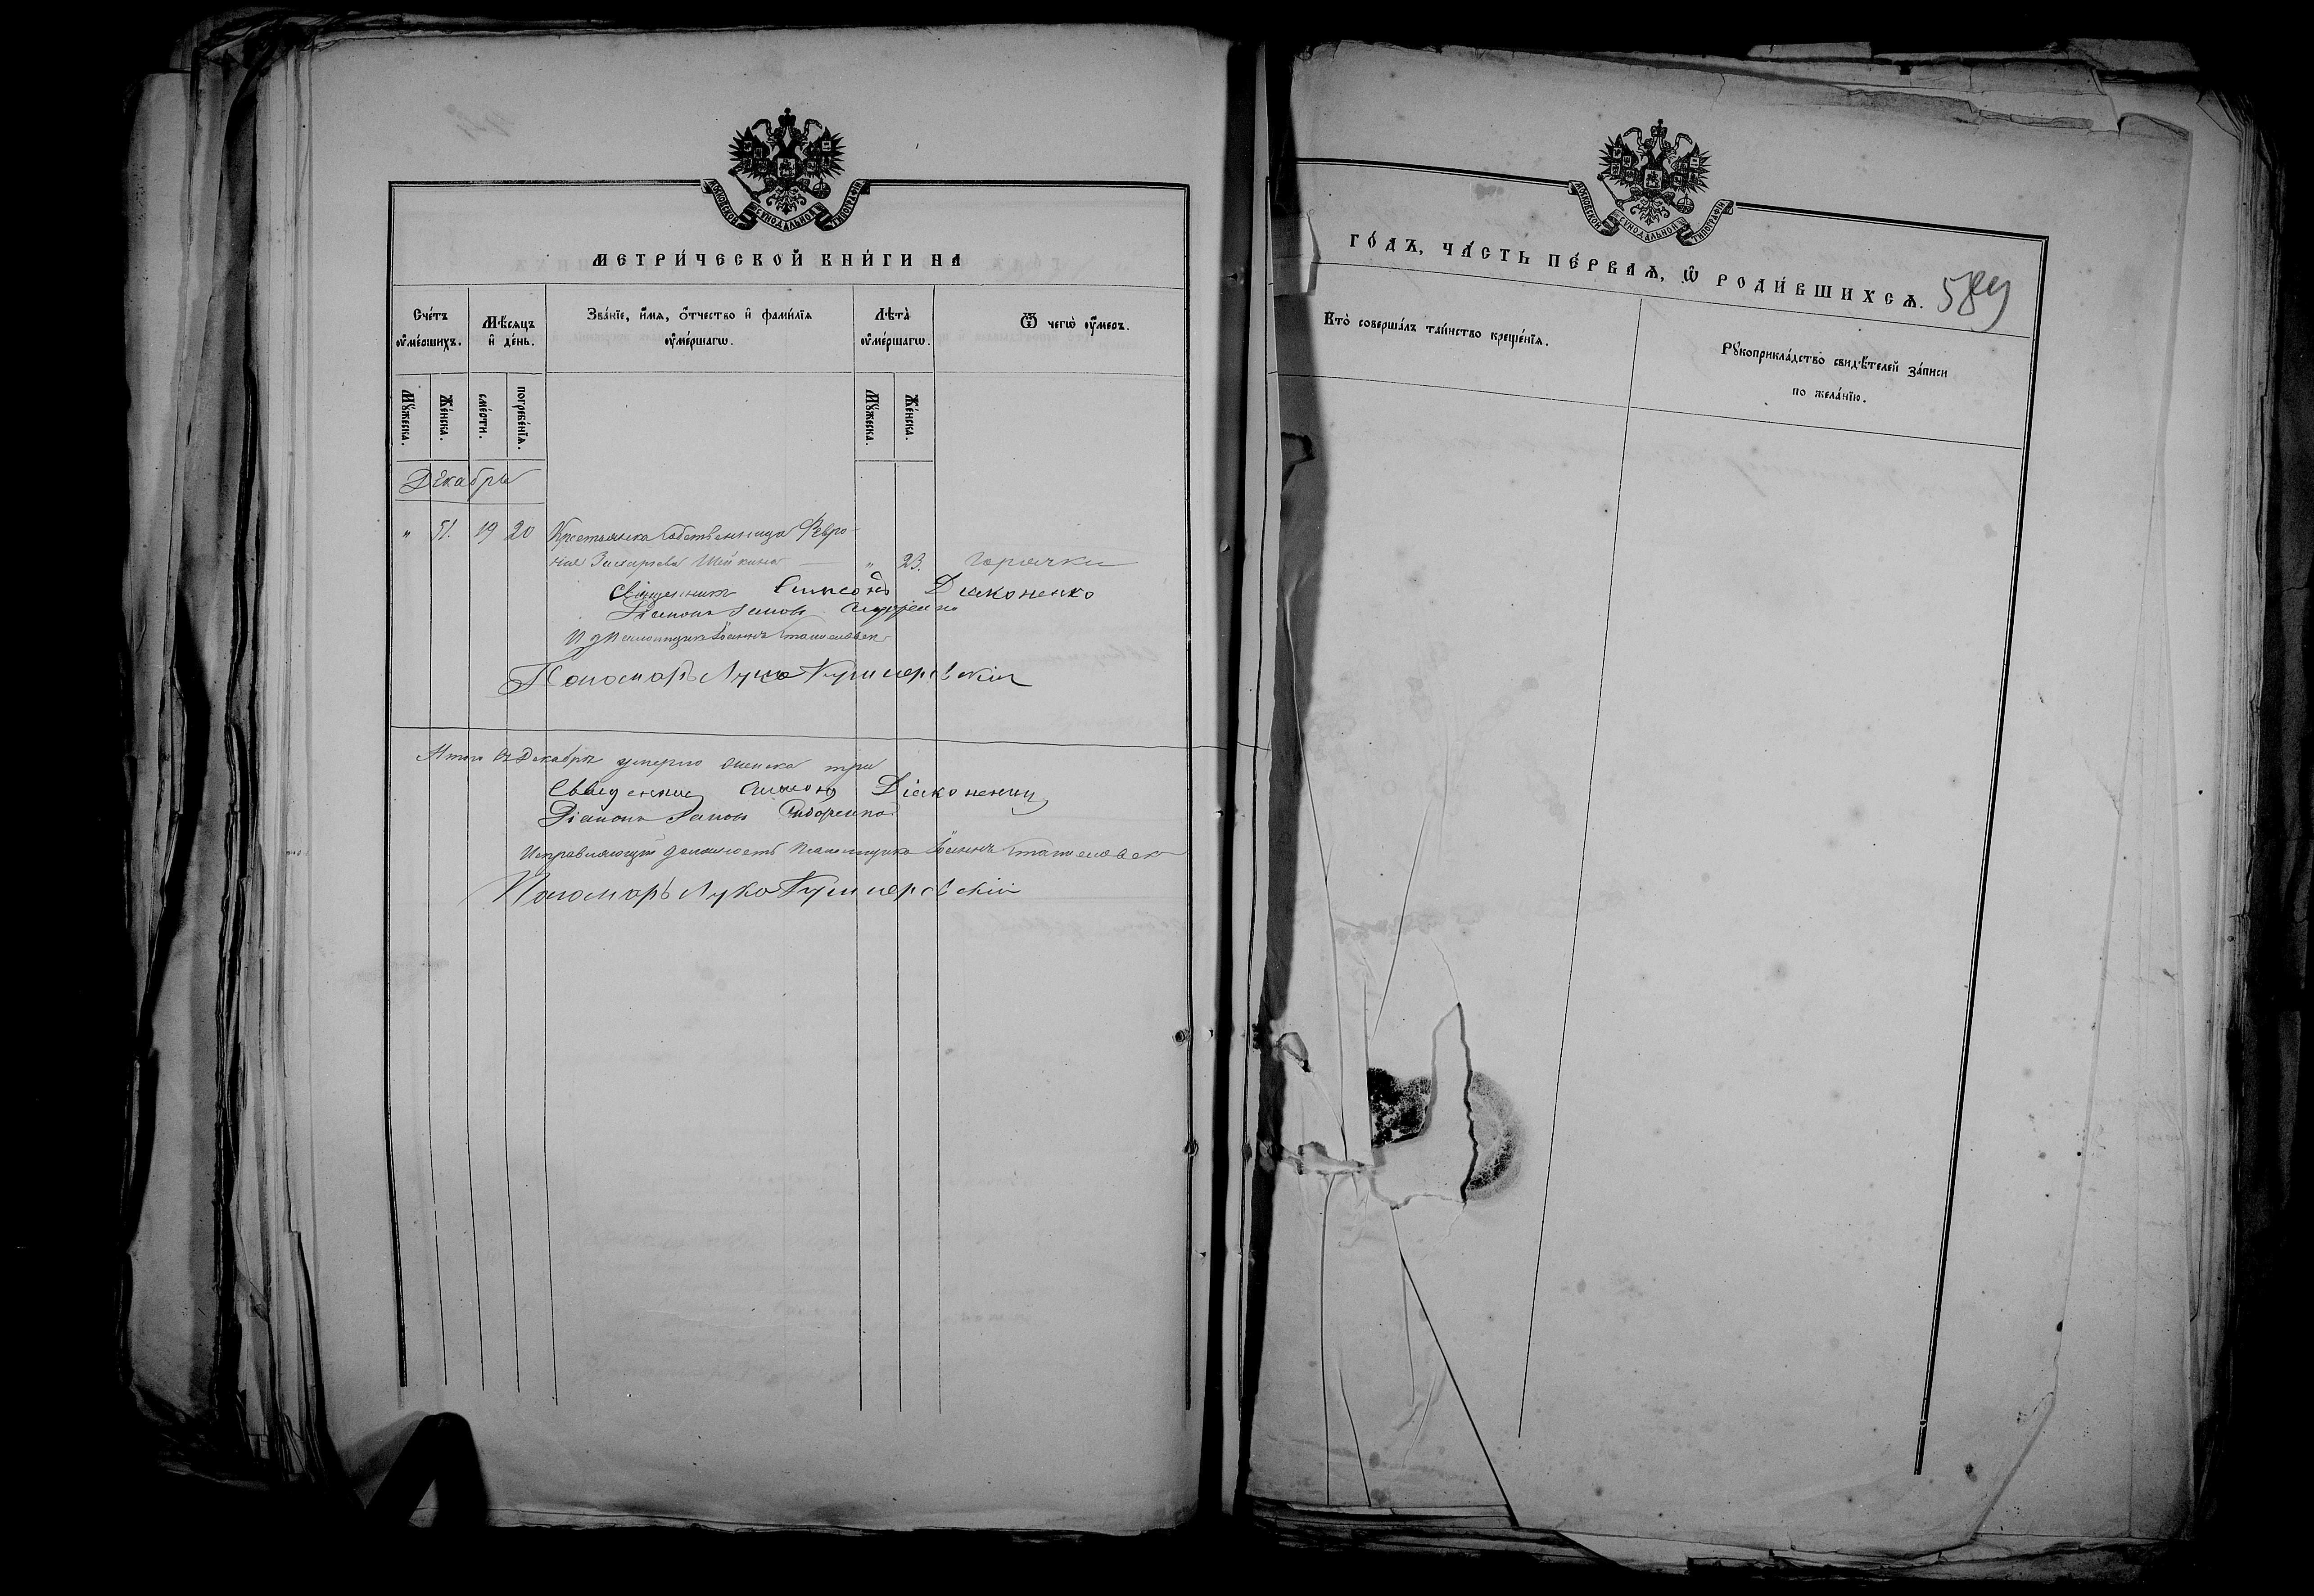 МОСКОВСКОЙ СУНОДАЛЬНОЙ ТИПОГРАФІИ
МЕТРИ́ЧЕСКОЙ КНИ́ГИ НА
Сче́тъ ᲂу҆ме́ршихъ.
Мѣ́сяцъ и҆ де́нь.
Зва́нїе, и҆́мѧ, ѻ҆́тчество и҆ фами́лїѧ ᲂу҆ме́ршагѡ.
Лѣ́та ᲂу҆ме́ршагѡ.
Ѿ чегѡ̀ ᲂу҆́меръ.
Мꙋ́жеска.
Же́нска.
сме́рти.
погребе́нїѧ.
Мꙋ́жеска.
Же́нска.
Декабрь
" 51. 19 20 Крестьянка собственница Февро-
нія Захарьева Шейкина — " 23. Горячки
Священникъ Симеонъ Діаконенко
Діаконъ
И д Псаломщика Іоаннъ
Пономарь Лука
Итого въ Декабрѣ умерло женска три
Священникъ Симеонъ Діаконенко
Діаконъ Сидоренко
Исправляющій должность Псаломщика Іоаннъ
Пономарь Лука
МОСКОВСКОЙ СУНОДАЛЬНОЙ ТИПОГРАФІИ
ГО́ДЪ, ЧА́СТЬ ПЕ́РВАѦ, Ѡ҆ РОДИ́ВШИХСѦ.
589
Кто̀ соверша́лъ та́инство креще́нїѧ.
Рꙋкоприкла́дство свидѣ́телей за́писи
по жела́нїю.